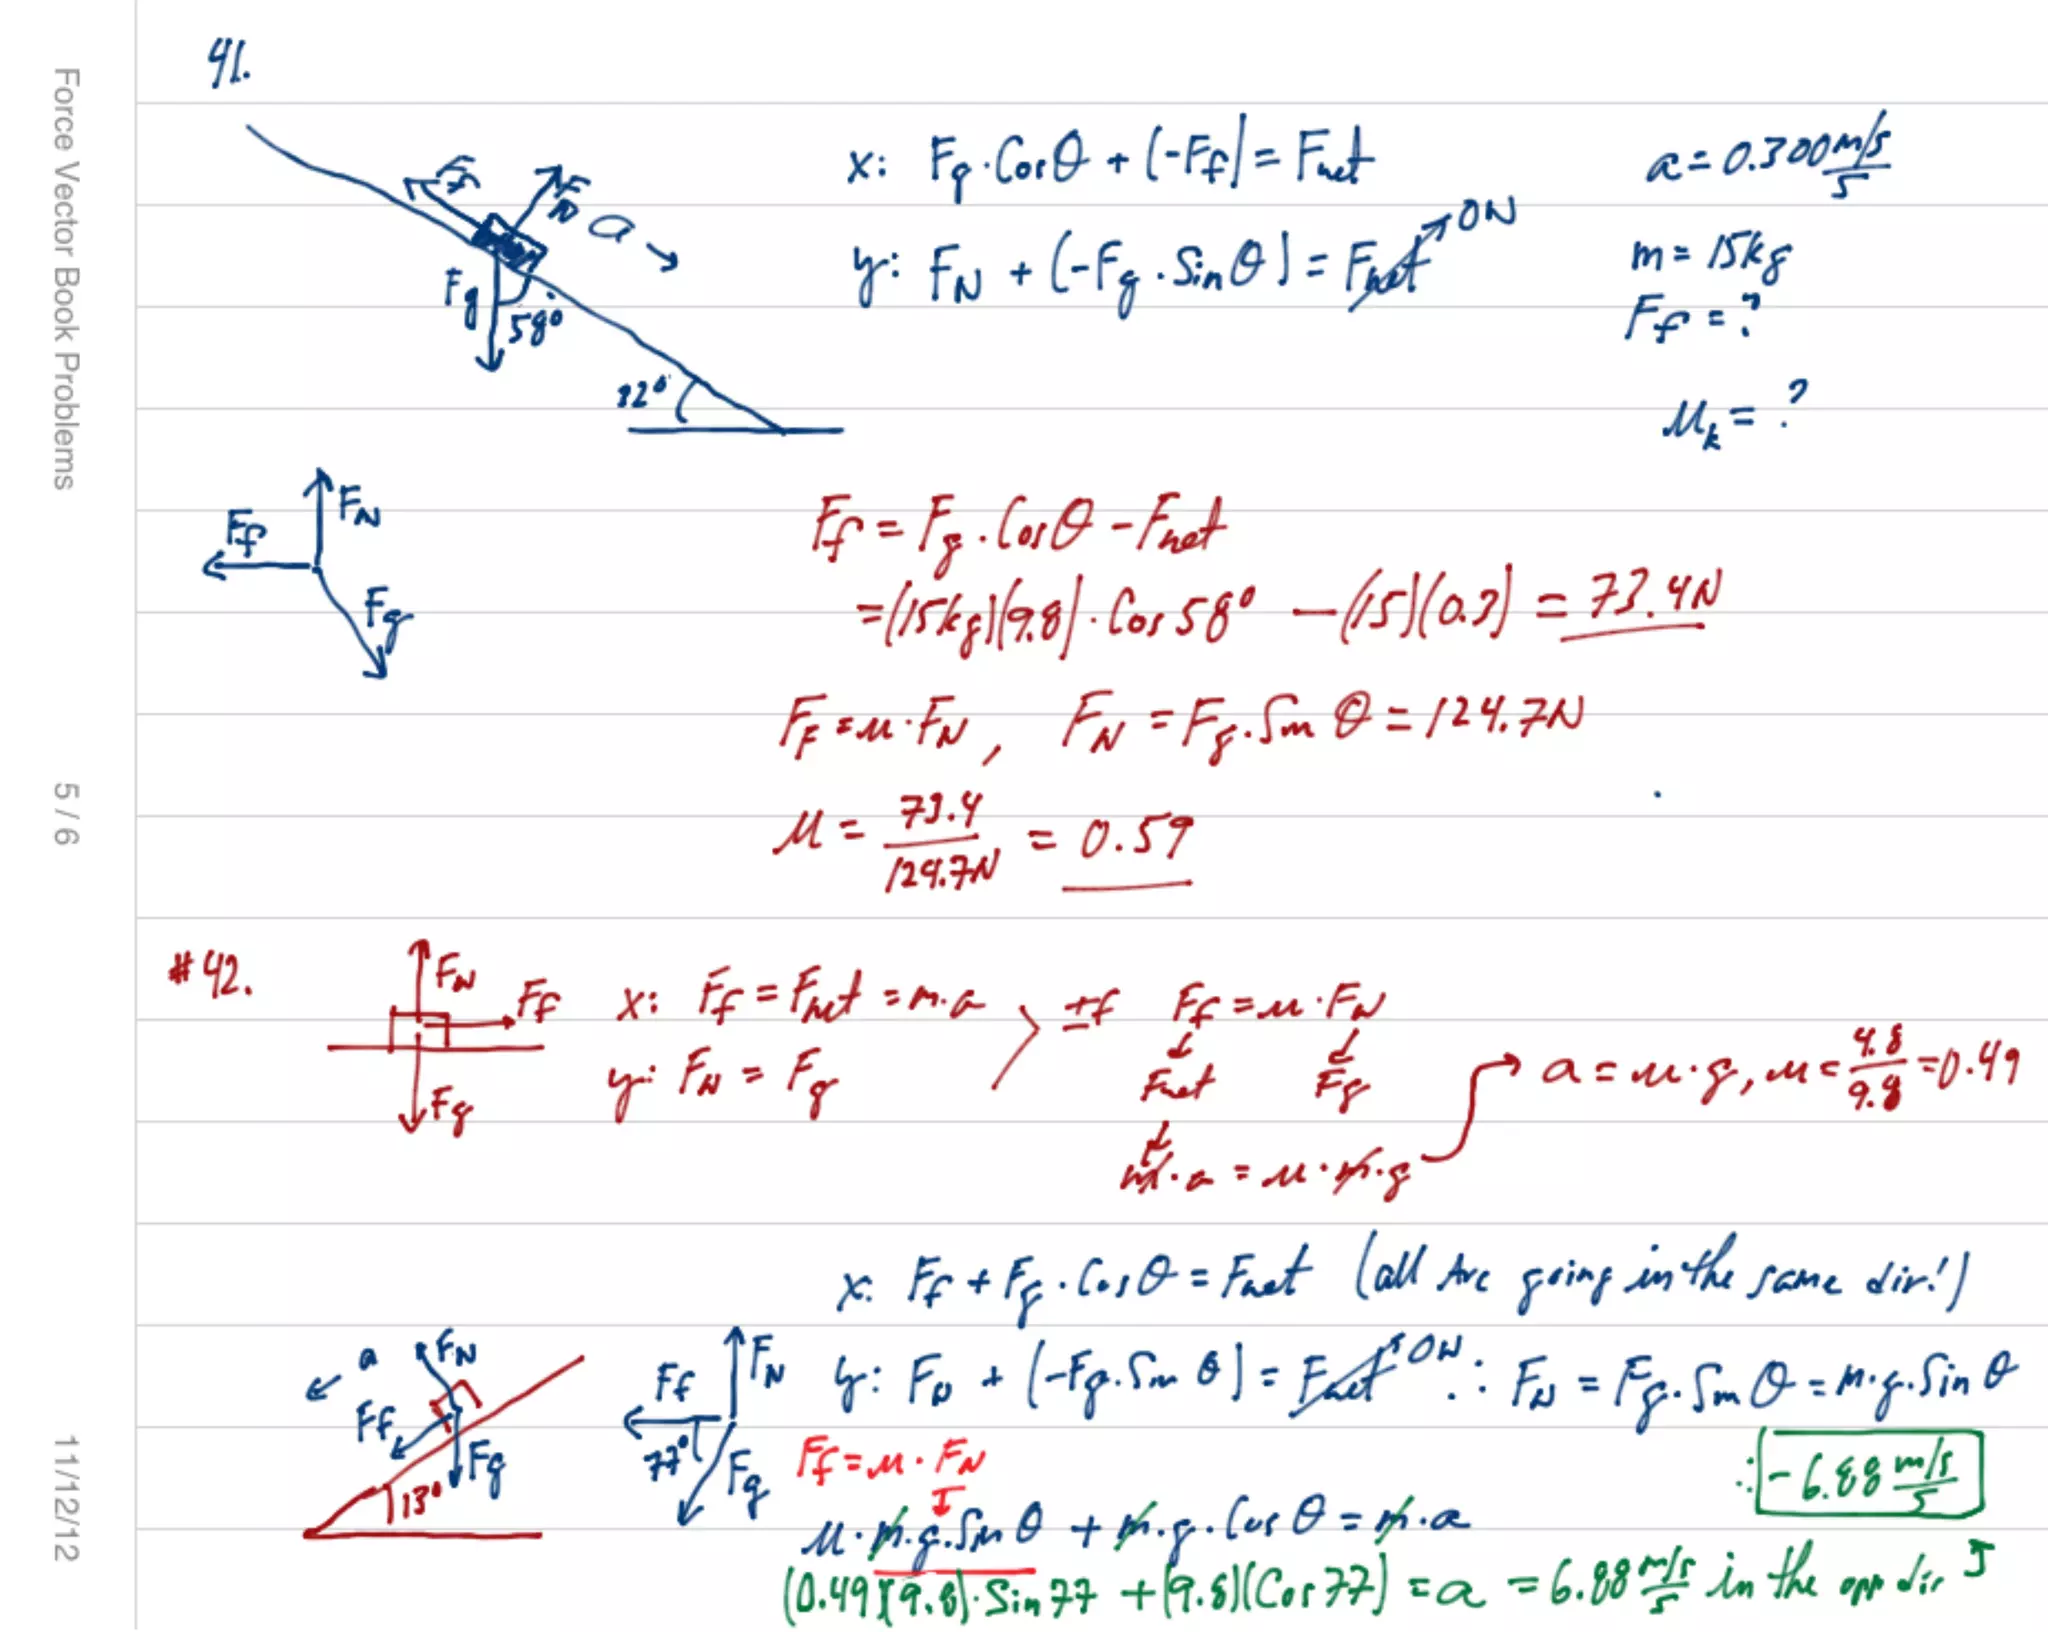 Force Vector Book Problems
5 / 6
11/12/12
41.
Ff
FN
a
Fg
58°
32°
x: Fg·Cosθ + (-Ff) = Fnet
y: FN + (-Fg·Sinθ) = Fnet 0N
a = 0.300 m/s/s
m = 15kg
Ff = ?
μk = ?
FN
Ff
Fg
Ff = Fg·Cosθ - Fnet
= (15kg)(9.8)·Cos58° - (15)(0.3) = 73.4N
FF = μ·FN, FN = Fg·Sinθ = 124.7N
μ = 73.4/124.7N = 0.59
#42.
FN
Ff
Fg
x: Ff = Fnet = m·a
y: FN = Fg
If Ff = μ·FN
Fnet Fg
m·a = μ·m·g
a = μ·g, μ = 4.8/9.8 = 0.49
x: Ff + Fg·Cosθ = Fnet (all are going in the same dir!)
a
FN
Ff
Fg
13°
FN
Ff
77°
Fg
y: FN + (-Fg·Sinθ) = Fnet 0N ∴ FN = Fg·Sinθ = m·g·Sinθ
Ff = μ·FN
∴ -6.88 m/s/s
μ·m·g·Sinθ + m·g·Cosθ = m·a
(0.49)(9.8)·Sin77 + (9.8)(Cos77) = a = 6.88 m/s/s in the opp dir